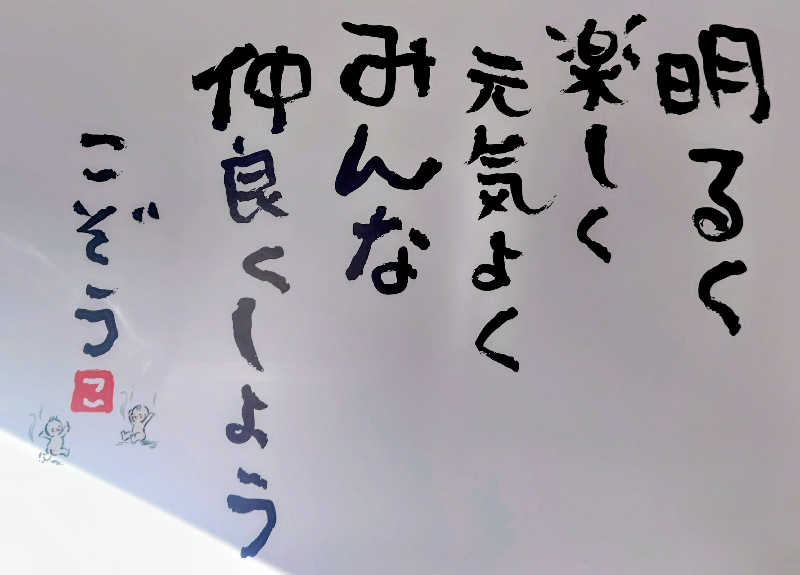 明るく
楽しく
元気よく
みんな
仲良くしよう
こぞう
こ